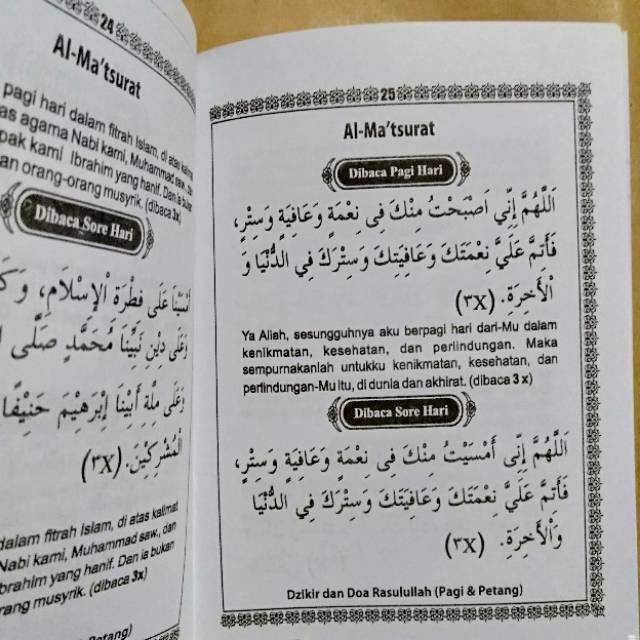 24
Al-Ma'tsurat
pagi hari dalam fitrah Islam, di atas kalimat
as agama Nabi kami, Muhammad saw., dan
pak kami Ibrahim yang hanif. Dan ia bukan
an orang-orang musyrik. (dibaca 3x)
Dibaca Sore Hari
أَمْسَيْنَا عَلَى فِطْرَةِ الْإِسْلَامِ، وَ
وَعَلَى دِيْنِ نَبِيِّنَا مُحَمَّدٍ صَلَّى
وَعَلَى مِلَّةِ أَبِيْنَا إِبْرَهِيْمَ حَنِيْفًا
الْمُشْرِكِيْنَ. (٣X)
dalam fitrah Islam, di atas kalimat
Nabi kami, Muhammad saw., dan
brahim yang hanif. Dan ia bukan
rang musyrik. (dibaca 3x)
Petang)
25
Al-Ma'tsurat
Dibaca Pagi Hari
اَللَّهُمَّ إِنِّي اَصْبَحْتُ مِنْكَ فِى نِعْمَةٍ وَعَافِيَةٍ وَسِتْرٍ،
فَأَتِمَّ عَلَيَّ نِعْمَتَكَ وَعَافِيَتِكَ وَسِتْرَكَ فِي الدُّنْيَا وَ
الْأَخِرَةِ. (٣X)
Ya Allah, sesungguhnya aku berpagi hari dari-Mu dalam
kenikmatan, kesehatan, dan perlindungan. Maka
sempurnakanlah untukku kenikmatan, kesehatan, dan
perlindungan-Mu itu, di dunia dan akhirat. (dibaca 3 x)
Dibaca Sore Hari
اَللَّهُمَّ إِنِّى أَمْسَيْتُ مِنْكَ فِى نِعْمَةٍ وَعَافِيَةٍ وَسِتْرٍ،
فَأَتِمَّ عَلَيَّ نِعْمَتَكَ وَعَافِيَتَكَ وَسِتْرَكَ فِي الدُّنْيَا
وَالْأَخِرَةِ. (٣X)
Dzikir dan Doa Rasulullah (Pagi & Petang)